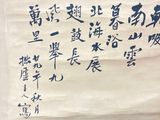 朝吸
南山雲
暮浴
北海水展
翅鼓長
風一舉九
萬里
廿九年秋月
廬主人寫